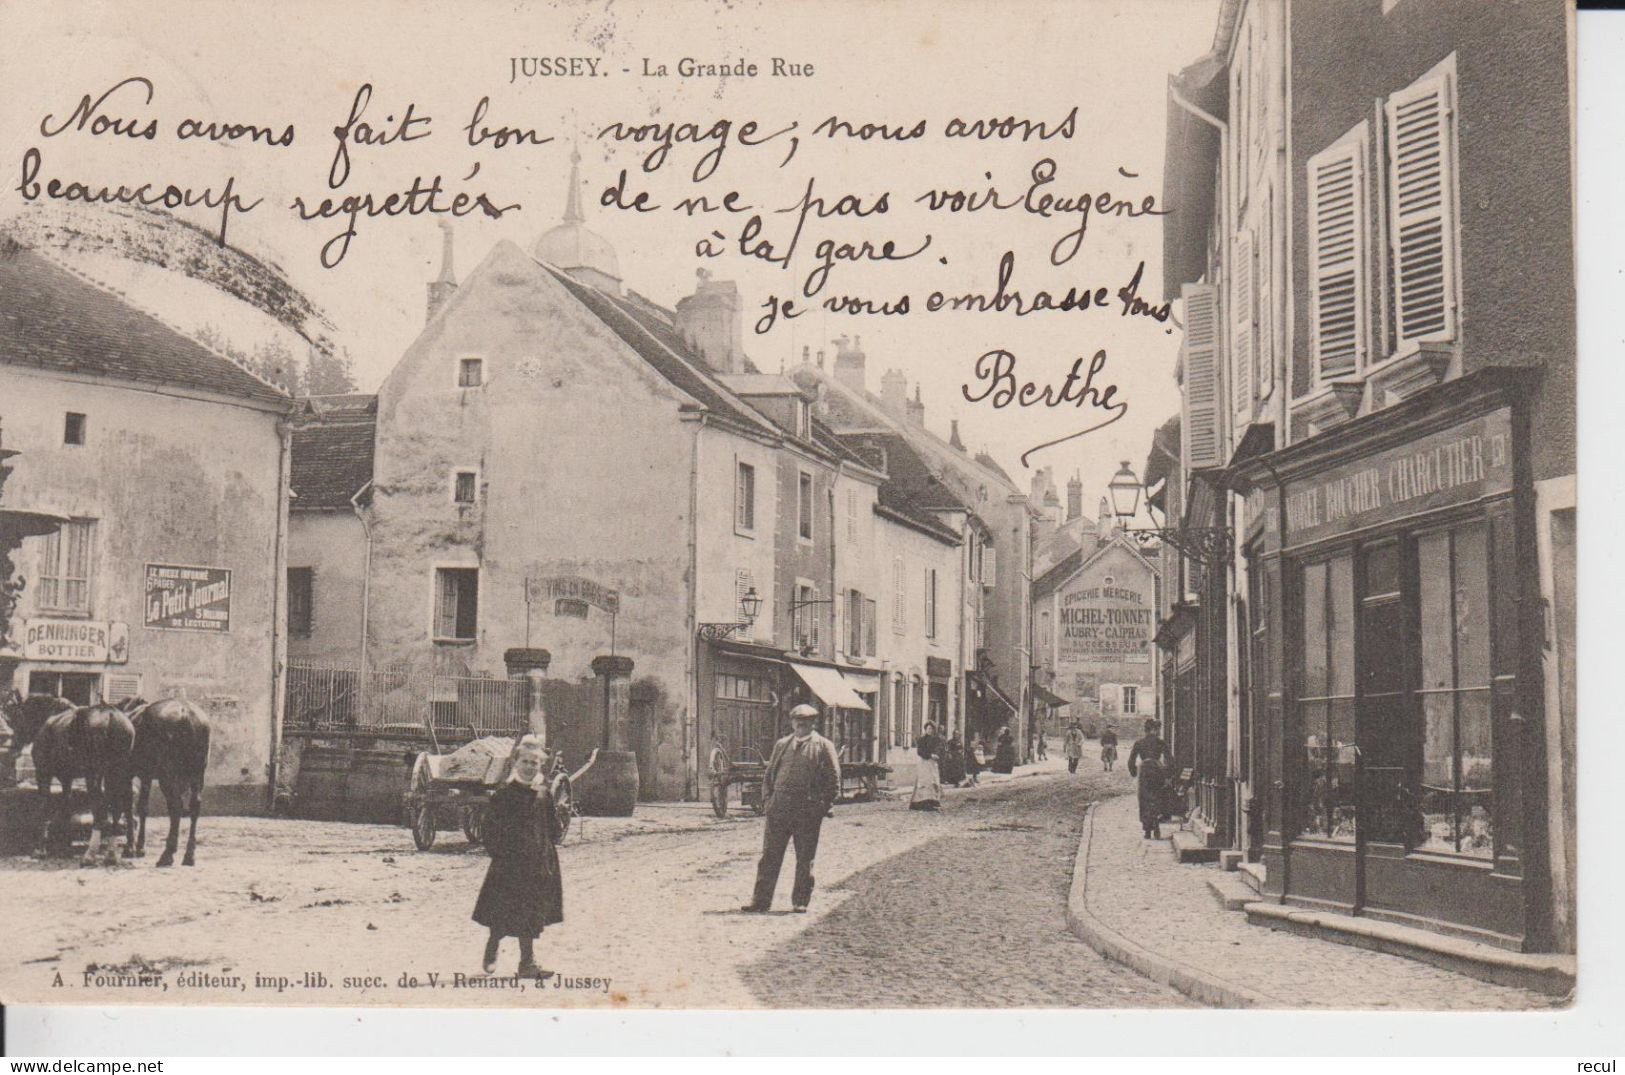 JUSSEY. - La Grande Rue
Nous avons fait bon voyage, nous avons
beaucoup regretter de ne pas voir Eugène
à la gare.
je vous embrasse tous.
Berthe
LE MIEUX INFORMÉ
6 PAGES
Le Petit Journal
DE LECTEURS
DENNINGER
BOTTIER
VINS EN GROS
EPICERIE MERCERIE
MICHEL-TONNET
AUBRY-CAÏPHAS
SUCCESSEUR
BOUCHER CHARCUTIER
A. Fournier, éditeur, imp.-lib. succ. de V. Renard, à Jussey
recul